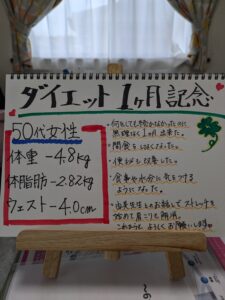 ダイエット1ヶ月記念
50代女性
体重 -4.8kg
体脂肪 -2.82kg
ウエスト -4.0cm
・何をしても続かなかったのに
無理なく1ヶ月出来た。
・間食をしなくなった。
・便ぴも改善した。
・食事や水分に気をつける
ようになった。
・先生との お話しで ストレッチを
始めて肩こりも解消。
これからもよろしくお願いします。